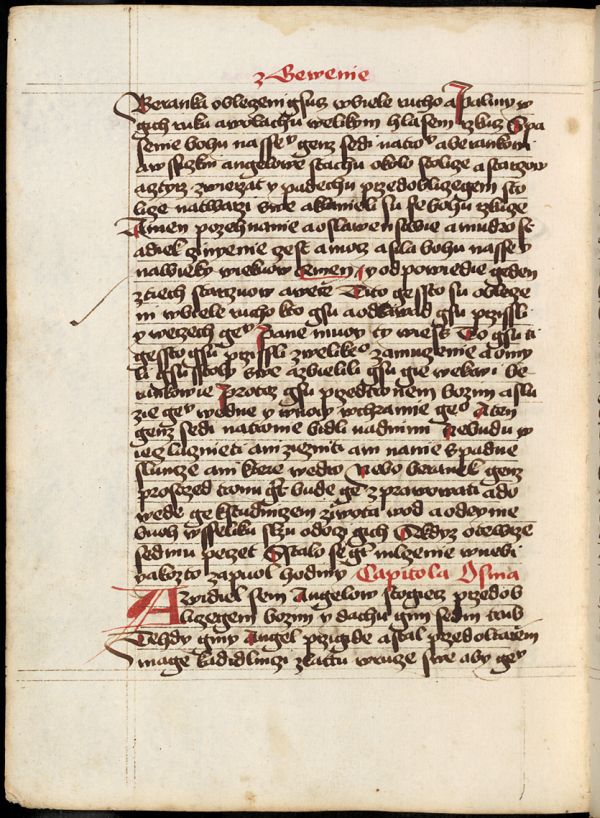 z Gewenie
Beranka obleczeni gsuz wbiele rucho a palmy w
gich ruku a wolachu welikym hlasem rzkuz Spa
senie bohu nasse͛ genz sedi na tro͛ a berankowi
aw sszkm angelowe stachu okolo stolice a starzow
a cztyrz zwierzat y padechu przed oblizegem sto
lize na twarzi swe a klanieli su se bohu rzkuze
Amen pozehnanie a oslawenstwie a mudrost
a diek czinienie czest a moz a sila bohu nasse͛
na wieky wiekuow Amen y odpowiedie geden
z tiech starzuow a wece Tito gessto su obleze
ni w biele rucho kto gsu a odkawad gsu przissli
y wezech ge͛ Pane muoy ty wiess To gsu ti
gessto gsu przissli z welike͛ zamuzenie a omy
li gsu stoly swe a zbielili gsu gie we krwi be
rankowie Protoz gsu przed tronem bozim a slu
zie ge͛ we dne y w nozy w chramie ge͛ A ten
genz sedi na tronie bidli nad nimi Nebudu w
iez lacznieti ani ziezniti ani na nie spadne
slunce ani ktere wedro Nebo beranek genz
prosrzed tronu gt bude ge zprawowati a do
wede ge k studnicem ziwota wod a odeyme
buoh wsseliku slzu od oczi gich A kdyz otewrze
sedmu peczet Stalo se gt mlczenie w nebi
yakozto za puol hodiny Capitola Osma
A zwidiel sem Angelow stogiecz przed ob
liczegem bozim y dachu gim sedm trub
Tehdy giny Angel przigide a stal przed oltarzem
mage kadidlnizi zlattu w ruze swe aby ge͛